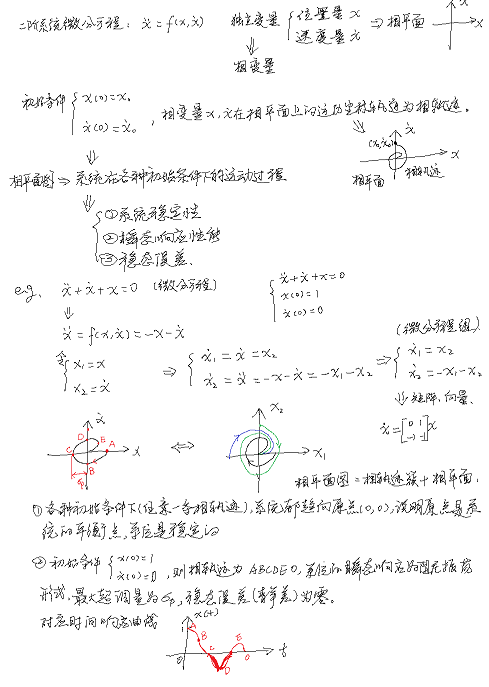 二阶系统微分方程: ẍ = f(x, ẋ) 独立变量 { 位置量 x 速度量 ẋ ⇒ 相平面 x ẋ
⇓
相变量
初始条件 { x(0)=x₀ ẋ(0)=ẋ₀ , 相变量 x, ẋ 在相平面上的运动坐标轨迹为相轨迹。
(x₀, ẋ₀) ẋ x
相平面 相轨迹
相平面图 ⇒ 系统在各种初始条件下的运动过程
⇓
{ ①系统稳定性
②瞬态响应性能
③稳态误差.
eg. ẍ + ẋ + x = 0 (微分方程) { ẍ + ẋ + x = 0
x(0)=1
ẋ(0)=0
⇓
ẍ = f(x, ẋ) = -x - ẋ (微分方程组)
令 { x₁ = x x₂ = ẋ ⇒ { ẋ₁ = ẋ = x₂ ẋ₂ = ẍ = -x - ẋ = -x₁ - x₂ ⇒ { ẋ₁ = x₂ ẋ₂ = -x₁ - x₂
⇓ 矩阵.向量.
ẋ = [0 1 -1 -1] x
ẋ x A B C D E σp ⇔ x₂ x₁
相平面图 = 相轨迹簇 + 相平面.
① 各种初始条件下(任意一条相轨迹), 系统都趋向原点(0,0), 说明原点是系
统的平衡点, 系统是稳定的
② 初始条件 { x(0)=1 ẋ(0)=0 , 则相轨迹为 ABCDEO, 系统的瞬态响应为阻尼振荡
形式. 最大超调量为 σp, 稳态误差(静差)为零.
对应时间响应曲线 x(t)
1 A B C D E O 0 t